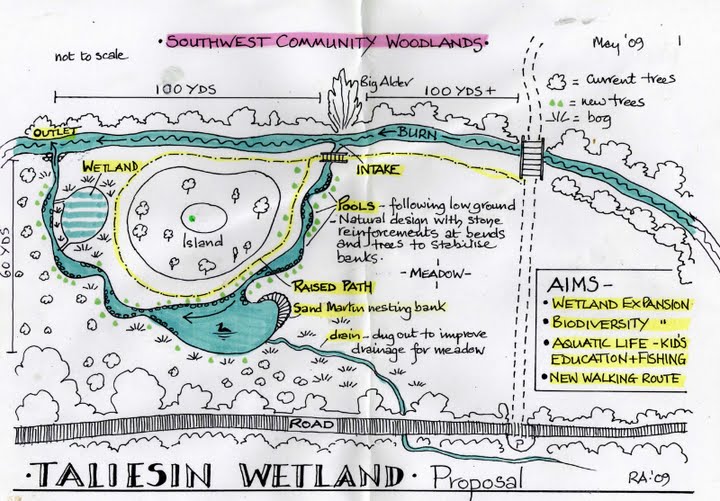 • SOUTHWEST COMMUNITY WOODLANDS •
May '09
1
not to scale
100 YDS
Big Alder
100 YDS +
= current trees
= new trees
= bog
OUTLET
BURN
WETLAND
INTAKE
POOLS - following low ground
- Natural design with stone
reinforcements at bends
and trees to stabilise
banks.
Island
- MEADOW -
60 YDS
RAISED PATH
Sand Martin nesting bank
drain - dug out to improve
drainage for meadow
AIMS -
• WETLAND EXPANSION
• BIODIVERSITY "
• AQUATIC LIFE - KID'S
EDUCATION + FISHING
• NEW WALKING ROUTE
ROAD
P
• TALIESIN WETLAND • Proposal
RA '09